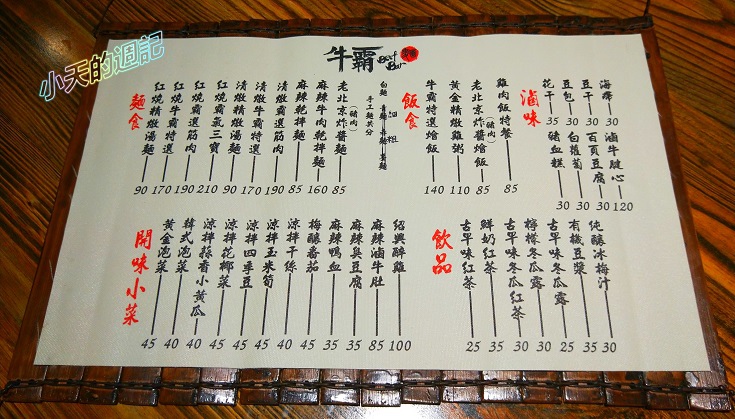 小天的週記
牛霸
Beef Bar
麵食
紅燒精燉湯麵 90
紅燒牛霸特選 170
紅燒霸選筋肉 190
紅燒霸氣三寶 210
清燉精燉湯麵 90
清燉牛霸特選 170
清燉霸選筋肉 190
麻辣乾拌麵 85
麻辣牛肉乾拌麵 160
老北京炸醬麵(豬肉) 85
手工麵共分
飯食
牛霸特選燴飯 140
黃金精燉雞粥 110
老北京炸醬燴飯(豬肉) 85
雞肉飯特餐 85
滷味
花干 35
豆包 30
豆干 30
海帶 30
豬血糕 30
白蘿蔔 30
百頁豆腐 30
滷牛腱心 120
開味小菜
黃金泡菜 45
韓式泡菜 40
涼拌蒜香小黃瓜 40
涼拌花椰菜 45
涼拌四季豆 45
涼拌玉米筍 45
涼拌干絲 40
梅釀番茄 45
麻辣鴨血 35
麻辣臭豆腐 35
麻辣滷牛肚 85
紹興醉雞 100
飲品
古早味紅茶 25
鮮奶紅茶 35
古早味冬瓜紅茶 30
檸檬冬瓜露 30
古早味冬瓜露 25
有機豆漿 35
純釀冰梅汁 30